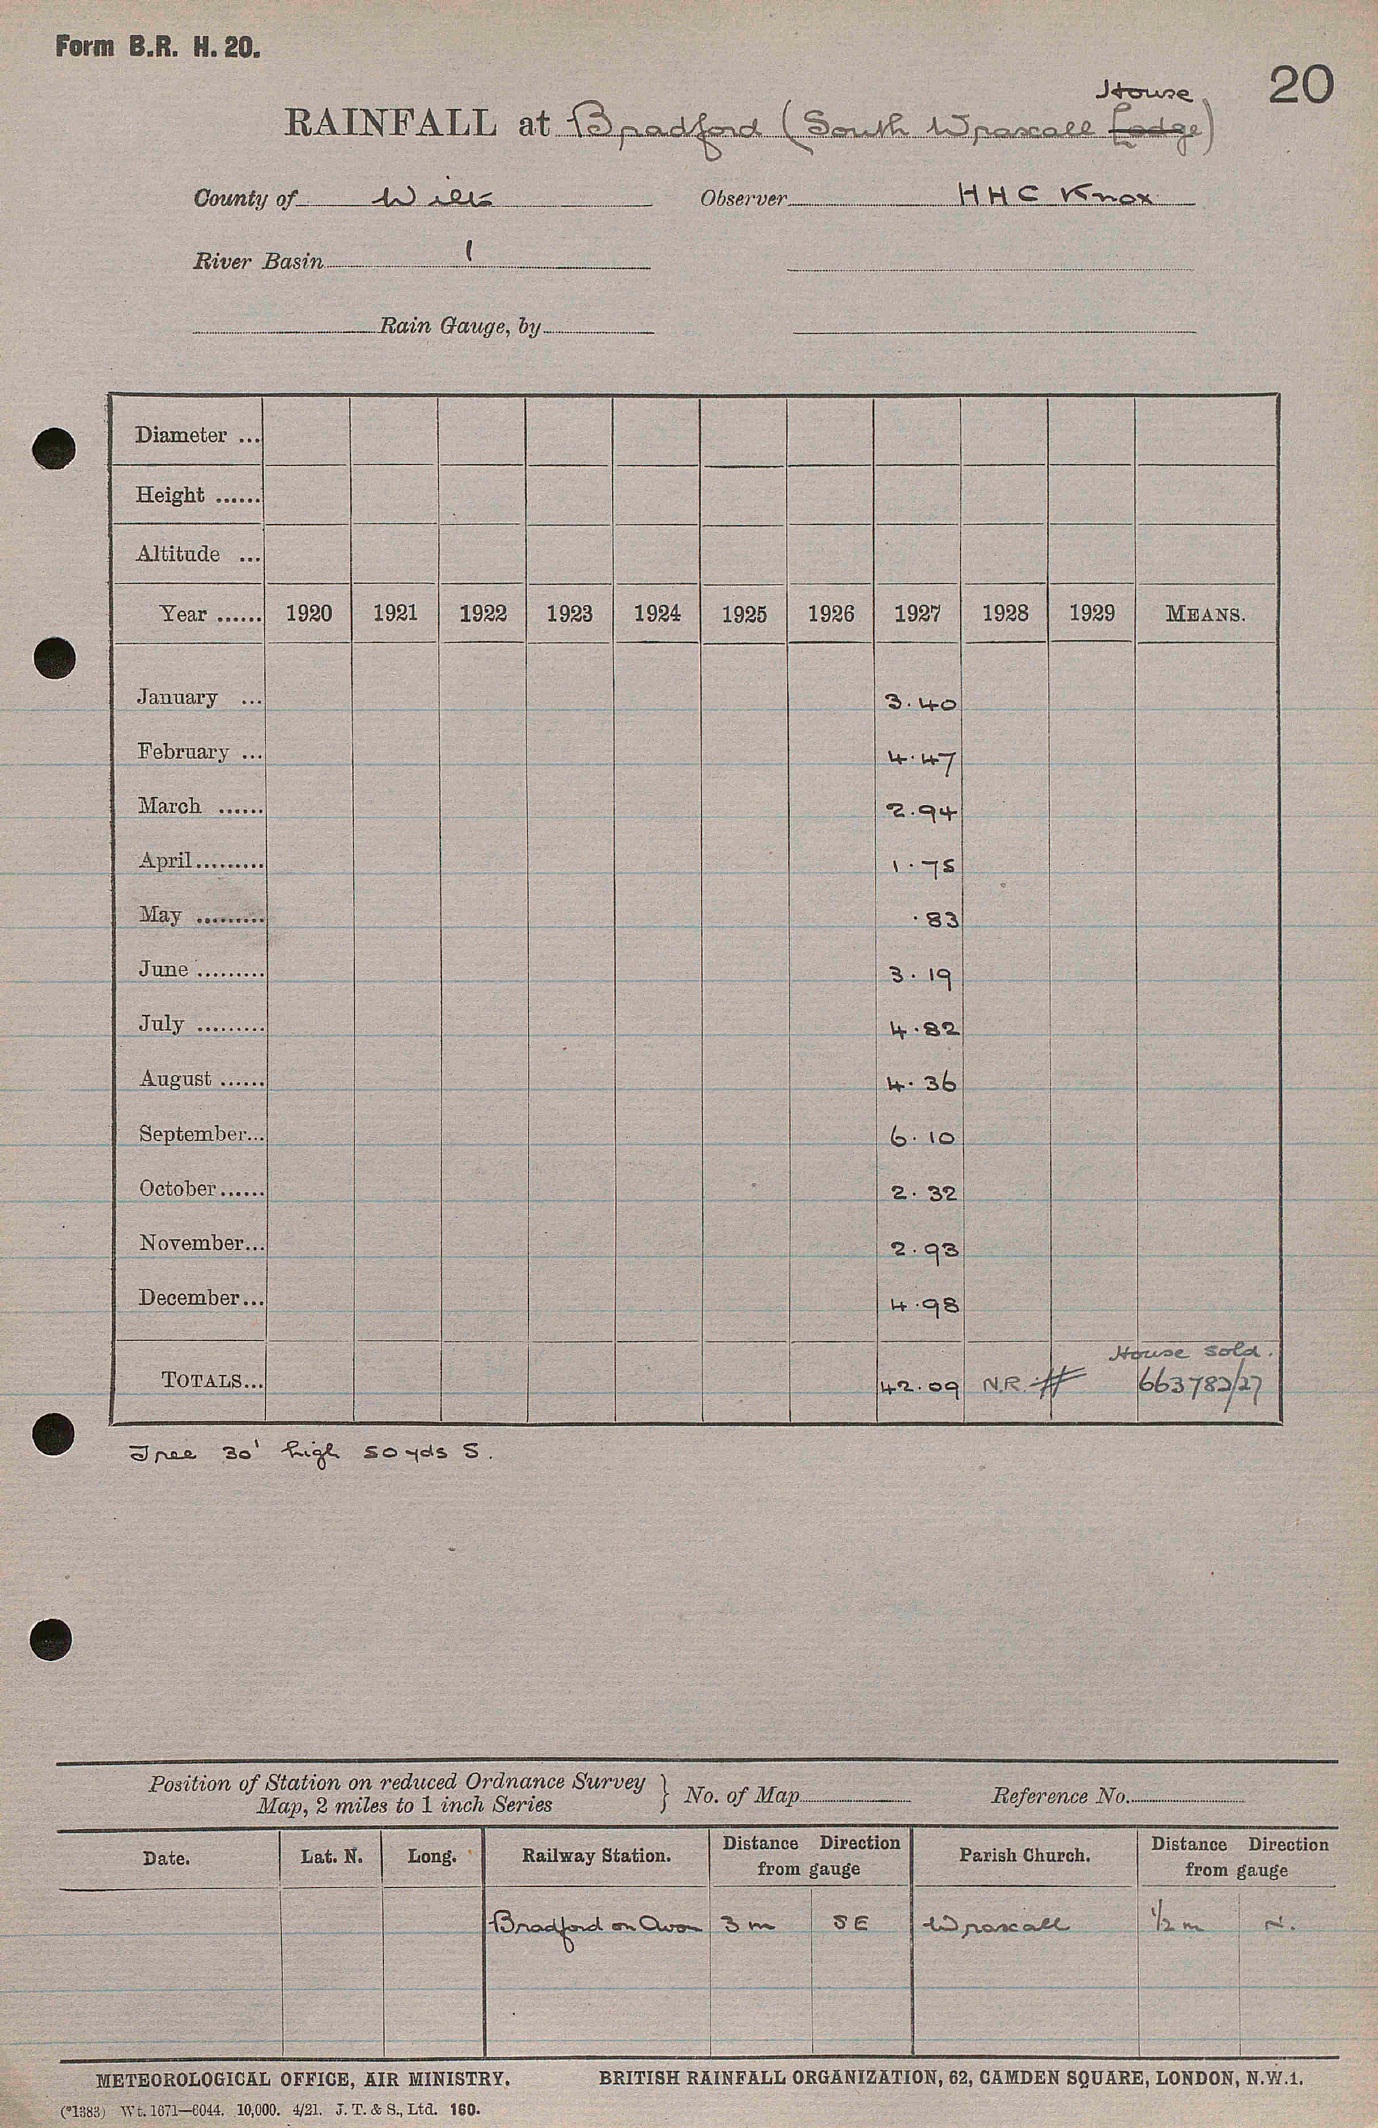 Form B.R. H. 20.
20
House
RAINFALL at Bradford (South Wraxall Lodge)
County of Wilts Observer HHC Knox
River Basin 1
Rain Gauge, by
Diameter ...
Height ......
Altitude ...
Year ...... 1920 1921 1922 1923 1924 1925 1926 1927 1928 1929 MEANS.
January ... 3.40
February ... 4.47
March ...... 2.94
April......... 1.75
May ......... .83
June ......... 3.19
July ......... 4.82
August ...... 4.36
September... 6.10
October...... 2.32
November... 2.93
December... 4.98
House sold.
TOTALS... 42.09 N.R. # 663782/27
Tree 30' high 50 yds S.
Position of Station on reduced Ordnance Survey
Map, 2 miles to 1 inch Series } No. of Map Reference No.
Date. Lat. N. Long. Railway Station. Distance Direction from gauge Parish Church. Distance Direction from gauge
Bradford on Avon 3 m SE Wraxall 1/2 m N.
METEOROLOGICAL OFFICE, AIR MINISTRY. BRITISH RAINFALL ORGANIZATION, 62, CAMDEN SQUARE, LONDON, N.W.1.
(*1383) Wt. 1671—6044. 10,000. 4/21. J. T. & S., Ltd. 160.